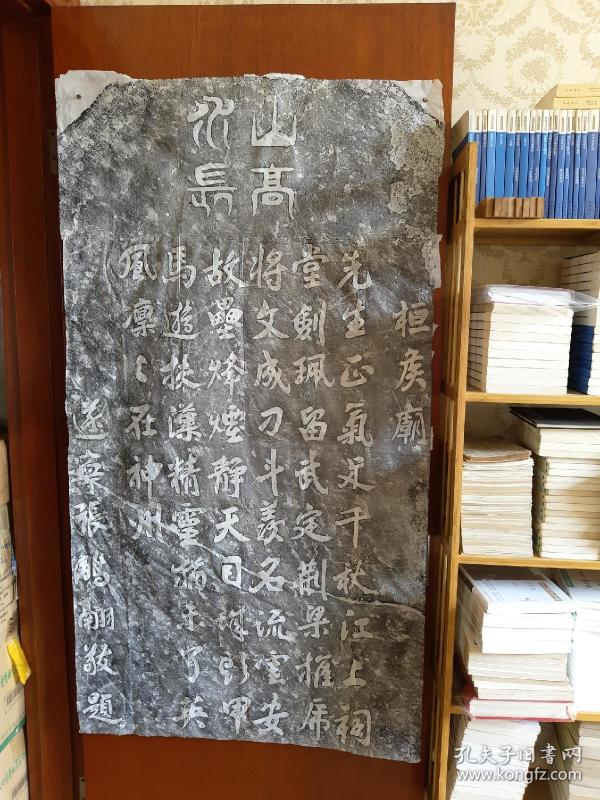 山高
水長
桓侯廟
先生正氣足千秋江上祠
堂劍珮留武定荊梁推虎
將文成刁斗羨名流雲安
故壘烽煙靜天日影甲
馬遊扶漢精靈猶未了英
風凜〻在神州
遂寧張鵬翮敬題
孔夫子旧书网
www.kongfz.com